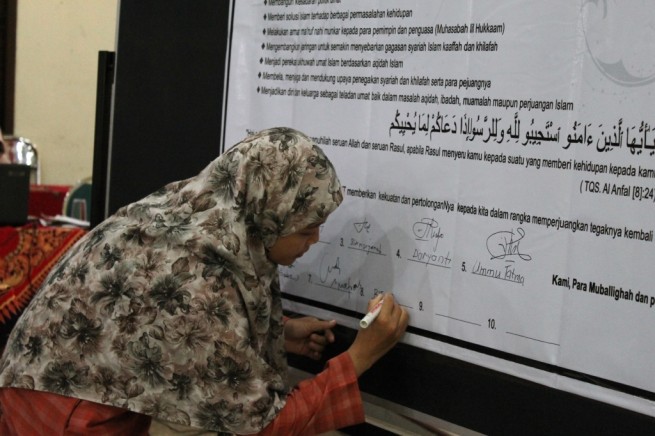 Membangun kesadaran politik umat
Memberi solusi Islam terhadap berbagai permasalahan kehidupan
Melakukan amar ma'ruf nahi munkar kepada para pemimpin dan penguasa (Muhasabah lil Hukkaam)
Mengembangkan jaringan untuk semakin menyebarkan gagasan syariah Islam kaaffah dan khilafah
Menjadi perekat ukhuwah umat Islam berdasarkan aqidah Islam
Membela, menjaga dan mendukung upaya penegakan syariah dan khilafah serta para pejuangnya
Menjadikan diri dan keluarga sebagai teladan umat baik dalam masalah aqidah, ibadah, muamalah maupun perjuangan Islam
يَٰٓأَيُّهَا ٱلَّذِينَ ءَامَنُوا۟ ٱسْتَجِيبُوا۟ لِلَّهِ وَلِلرَّسُولِ إِذَا دَعَاكُمْ لِمَا يُحْيِيكُمْ
seruan Allah dan seruan Rasul, apabila Rasul menyeru kamu kepada suatu yang memberi kehidupan kepada kamu
(TQS. Al Anfal [8]:24)
memberikan kekuatan dan pertolonganNya kepada kita dalam rangka memperjuangkan tegaknya kembali
3. 4. Daryanti 5. Ummu Fatma
Kami, Para Muballighah dan
7. 8. 9. 10.